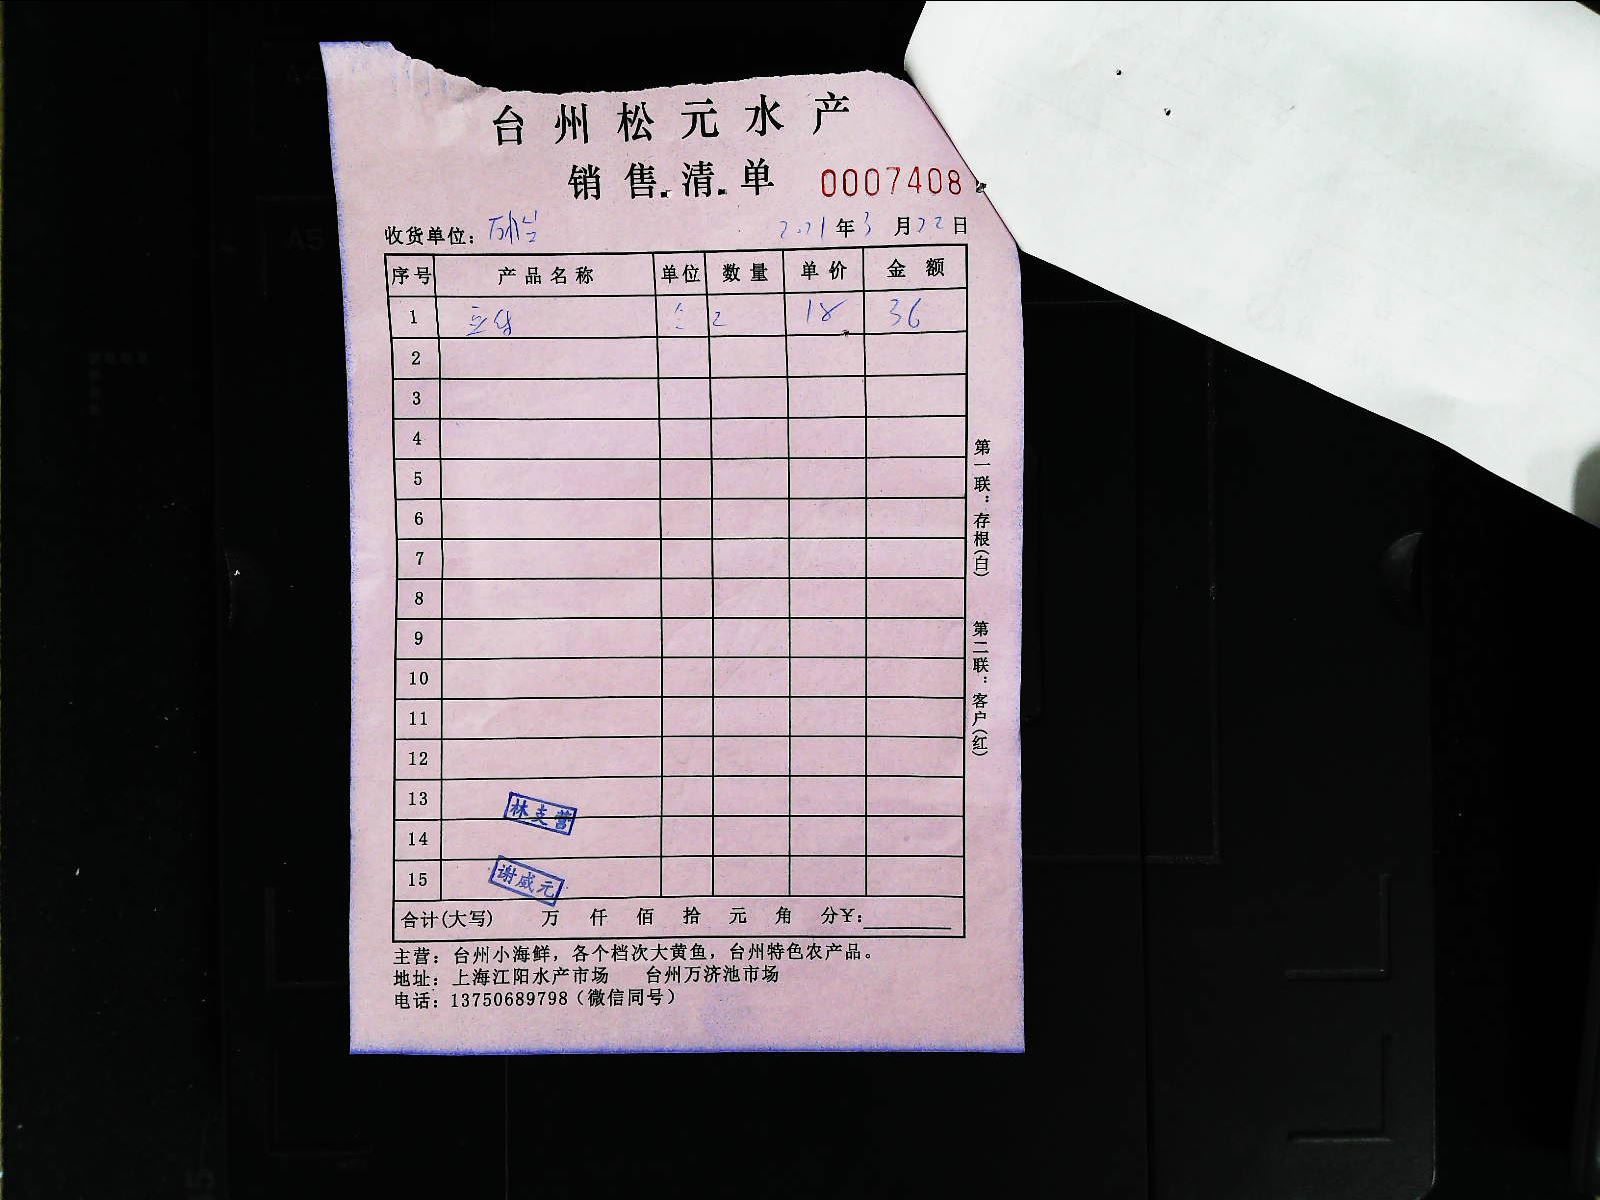 台州松元水产
销售清单 0007408
收货单位: 2021年3月22日
序号 产品名称 单位 数量 单价 金额
1 2 18 36
2
3
4
5
6
7
8
9
10
11
12
13 林支营
14
15 谢威元
合计(大写) 万 仟 佰 拾 元 角 分¥:
主营: 台州小海鲜, 各个档次大黄鱼, 台州特色农产品。
地址: 上海江阳水产市场 台州万济池市场
电话: 13750689798 (微信同号)
第一联: 存根(白) 第二联: 客户(红)